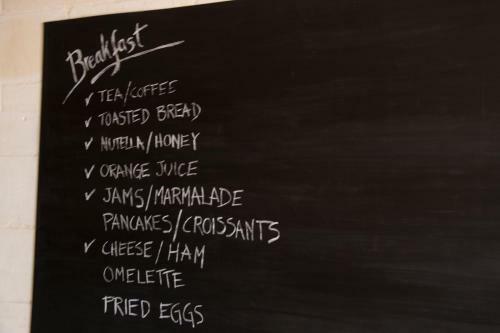 Breakfast
✓ TEA/COFFEE
✓ TOASTED BREAD
✓ NUTELLA/HONEY
✓ ORANGE JUICE
✓ JAMS/MARMALADE
PANCAKES/CROISSANTS
✓ CHEESE/HAM
OMELETTE
FRIED EGGS